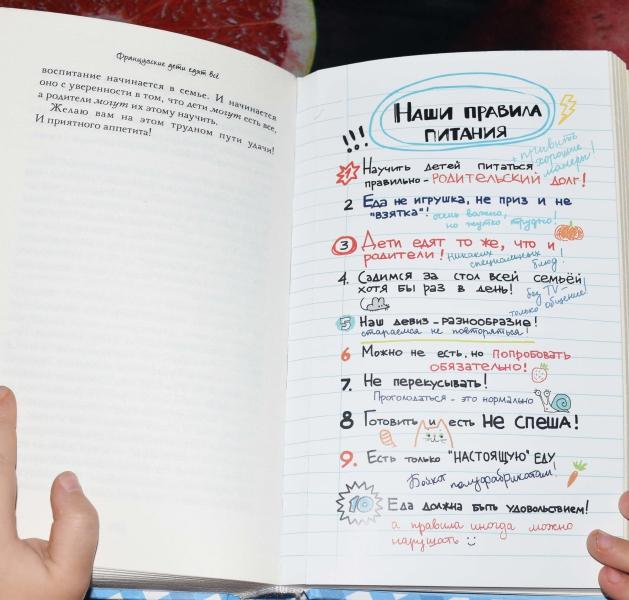 Французские дети едят всё
воспитание начинается в семье. И начинается
оно с уверенности в том, что дети могут есть все,
а родители могут их этому научить.
Желаю вам на этом трудном пути удачи!
И приятного аппетита!
Наши правила
питания
!!!
1 Научить детей питаться + привить
хорошие
манеры!
правильно - родительский долг!
2 Еда не игрушка, не приз и не
"взятка"! очень важно,
но жутко трудно!
3 Дети едят то же, что и
родители! никаких
специальных
блюд!
4. Садимся за стол всей семьёй
хотя бы раз в день! без TV -
только общение!
5 Наш девиз - разнообразие!
стараемся не повторяться!
6 Можно не есть, но попробовать
обязательно!
7. Не перекусывать!
Проголодаться - это нормально
8 Готовить и есть не спеша!
9. Есть только "настоящую" еду
Бойкот полуфабрикатам!
10 Еда должна быть удовольствием!
а правила иногда можно
нарушать